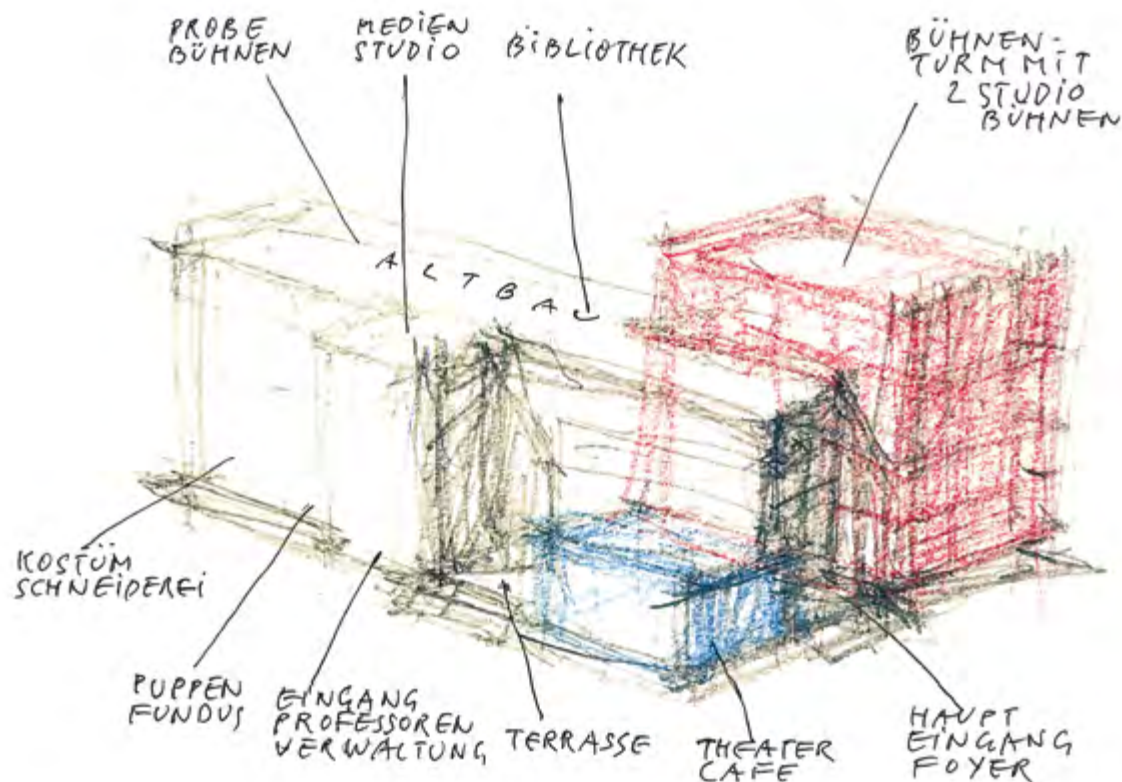 PROBE
BÜHNEN
MEDIEN
STUDIO
BIBLIOTHEK
BÜHNEN-
TURM MIT
2 STUDIO
BÜHNEN
ALTBAU
KOSTÜM
SCHNEIDEREI
PUPPEN
FUNDUS
EINGANG
PROFESSOREN
VERWALTUNG
TERRASSE
THEATER
CAFE
HAUPT
EINGANG
FOYER